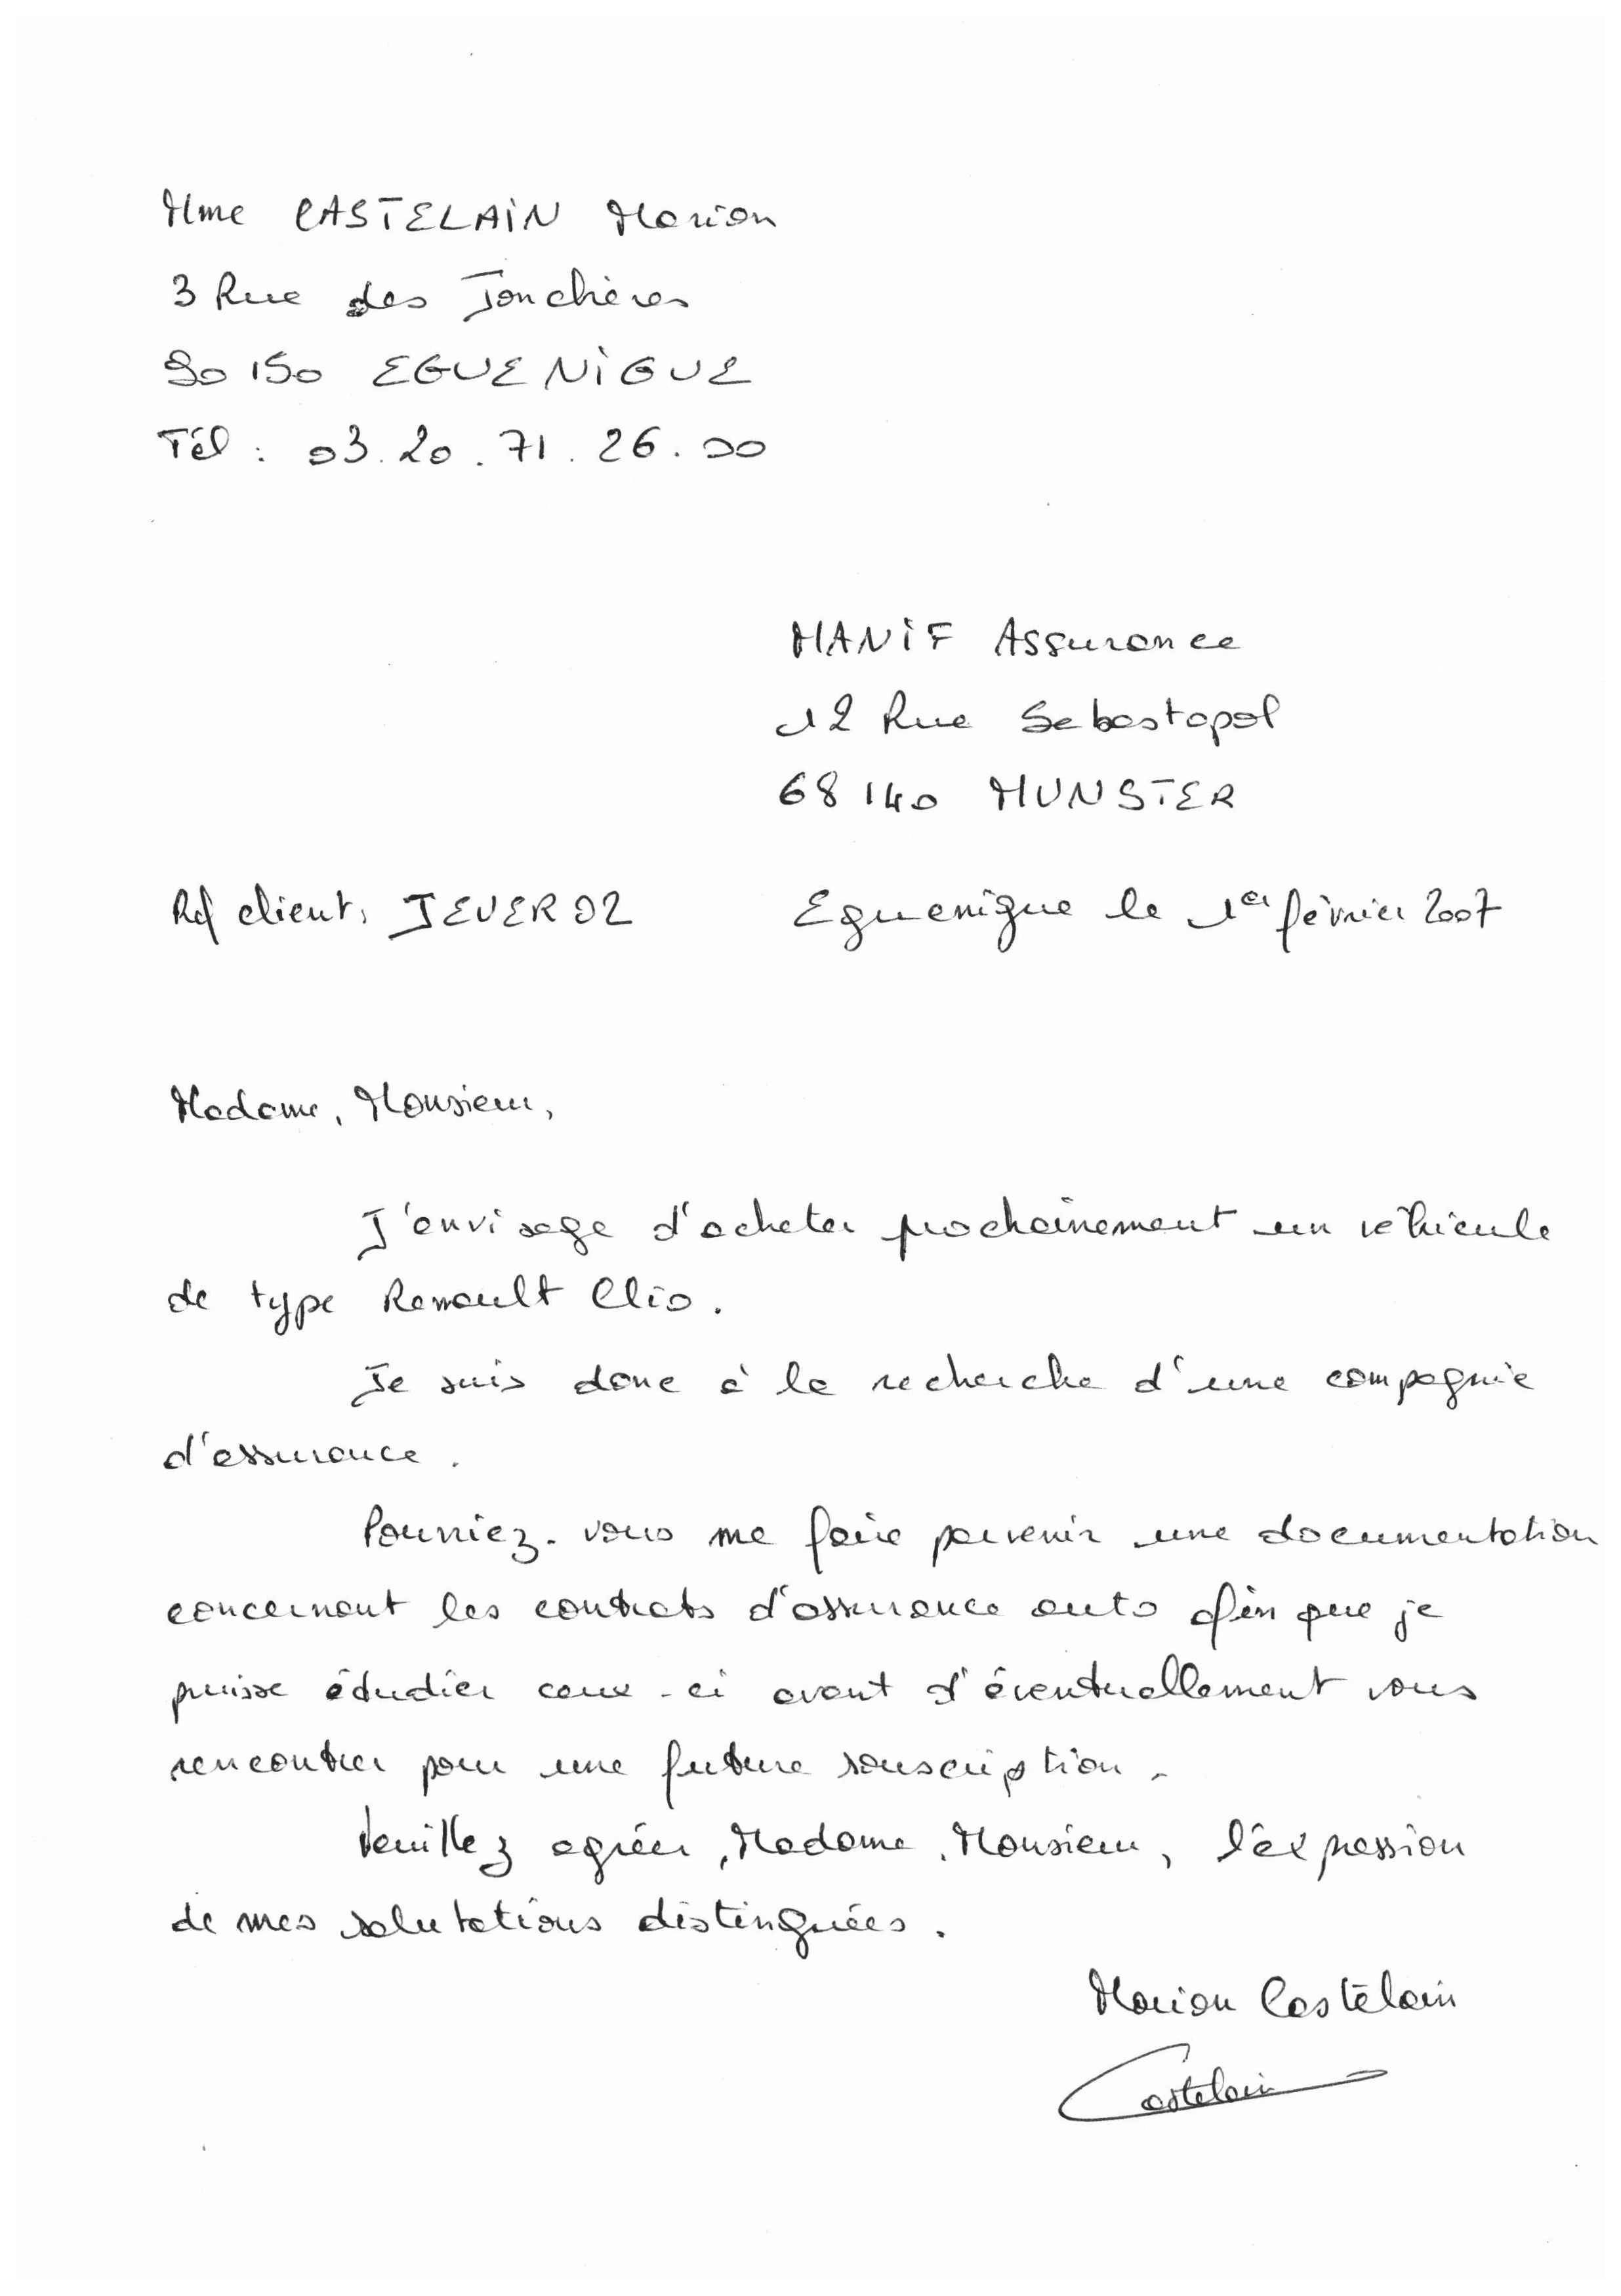 Mme CASTELAIN Marion
3 Rue des Jonchères
90150 EGUENIGUE
Tél : 03.20.71.26.00
MANIF Assurance
12 Rue Sebastopol
68140 MUNSTER
Ref client: JEVER02
Eguenigue le 1er février 2007
Madame, Monsieur,
J'envisage d'acheter prochainement un véhicule
de type Renault Clio.
Je suis donc à la recherche d'une compagnie
d'assurance.
Pourriez-vous me faire parvenir une documentation
concernant les contrats d'assurance auto afin que je
puisse étudier ceux-ci avant d'éventuellement vous
rencontrer pour une future souscription.
Veuillez agréer, Madame, Monsieur, l'expression
de mes salutations distinguées.
Marion Castelain
Castelain